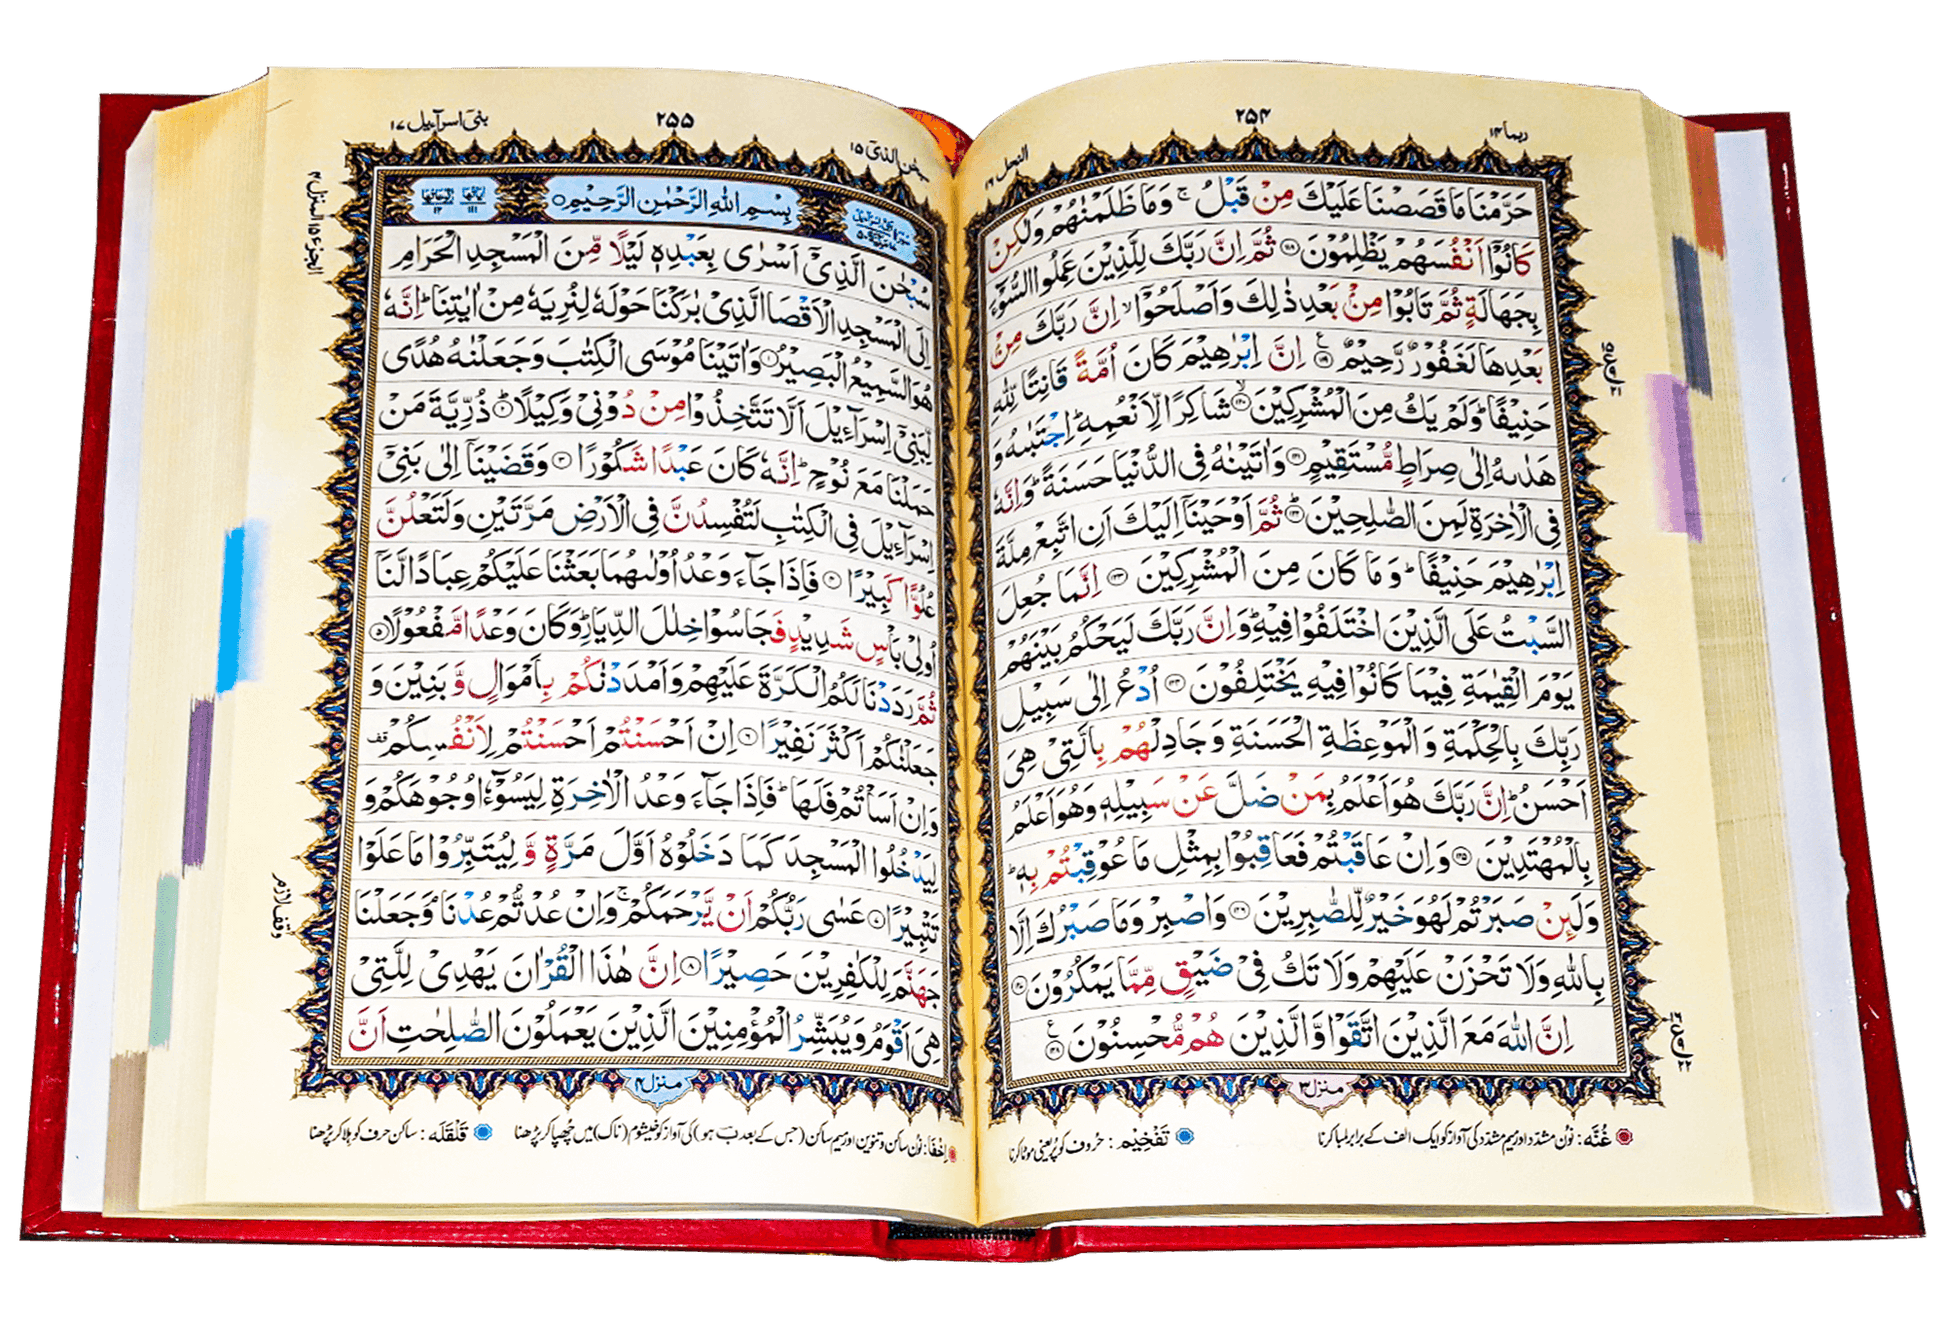 ربما ۱۴
۲۵۴
النحل ۱۶
حَرَّمْنَا مَا قَصَصْنَا عَلَيْكَ مِنْ قَبْلُ ۚ وَمَا ظَلَمْنٰهُمْ وَلٰكِنْ
كَانُوْٓا اَنْفُسَهُمْ يَظْلِمُوْنَ ۝۱۱۸ ثُمَّ اِنَّ رَبَّكَ لِلَّذِيْنَ عَمِلُوا السُّوْٓءَ
بِجَهَالَةٍ ثُمَّ تَابُوْا مِنْۢ بَعْدِ ذٰلِكَ وَاَصْلَحُوْٓا ۙ اِنَّ رَبَّكَ مِنْۢ
بَعْدِهَا لَغَفُوْرٌ رَّحِيْمٌ ۝۱۱۹ اِنَّ اِبْرٰهِيْمَ كَانَ اُمَّةً قَانِتًا لِّلّٰهِ
حَنِيْفًا ؕ وَلَمْ يَكُ مِنَ الْمُشْرِكِيْنَ ۝۱۲۰ شَاكِرًا لِّاَنْعُمِهٖ ؕ اِجْتَبٰىهُ وَ
هَدٰىهُ اِلٰى صِرَاطٍ مُّسْتَقِيْمٍ ۝۱۲۱ وَاٰتَيْنٰهُ فِى الدُّنْيَا حَسَنَةً ؕ وَاِنَّهٗ
فِى الْاٰخِرَةِ لَمِنَ الصّٰلِحِيْنَ ۝۱۲۲ ثُمَّ اَوْحَيْنَآ اِلَيْكَ اَنِ اتَّبِعْ مِلَّةَ
اِبْرٰهِيْمَ حَنِيْفًا ؕ وَمَا كَانَ مِنَ الْمُشْرِكِيْنَ ۝۱۲۳ اِنَّمَا جُعِلَ
السَّبْتُ عَلَى الَّذِيْنَ اخْتَلَفُوْا فِيْهِ ؕ وَاِنَّ رَبَّكَ لَيَحْكُمُ بَيْنَهُمْ
يَوْمَ الْقِيٰمَةِ فِيْمَا كَانُوْا فِيْهِ يَخْتَلِفُوْنَ ۝۱۲۴ اُدْعُ اِلٰى سَبِيْلِ
رَبِّكَ بِالْحِكْمَةِ وَالْمَوْعِظَةِ الْحَسَنَةِ وَجَادِلْهُمْ بِالَّتِىْ هِىَ
اَحْسَنُ ؕ اِنَّ رَبَّكَ هُوَ اَعْلَمُ بِمَنْ ضَلَّ عَنْ سَبِيْلِهٖ وَهُوَ اَعْلَمُ
بِالْمُهْتَدِيْنَ ۝۱۲۵ وَاِنْ عَاقَبْتُمْ فَعَاقِبُوْا بِمِثْلِ مَا عُوْقِبْتُمْ بِهٖ ؕ
وَلَئِنْ صَبَرْتُمْ لَهُوَ خَيْرٌ لِّلصّٰبِرِيْنَ ۝۱۲۶ وَاصْبِرْ وَمَا صَبْرُكَ اِلَّا
بِاللّٰهِ وَلَا تَحْزَنْ عَلَيْهِمْ وَلَا تَكُ فِىْ ضَيْقٍ مِّمَّا يَمْكُرُوْنَ ۝۱۲۷
اِنَّ اللّٰهَ مَعَ الَّذِيْنَ اتَّقَوْا وَّالَّذِيْنَ هُمْ مُّحْسِنُوْنَ ۝۱۲۸
منزل ۳
غُنَّه : نون مشدّد اور میم مشدّد کی آواز کو ایک الف کے برابر لمبا کرنا
تَفْخِیْم : حُروف کو پُر یعنی موٹا کرنا
سبحٰن الذی ۱۵
۲۵۵
بنی اسرآءیل ۱۷
الجزء ۱۵ المنزل ۴
بِسْمِ اللّٰهِ الرَّحْمٰنِ الرَّحِيْمِ
اٰیاتها ۱۱۱
رکوعاتها ۱۲
سُبْحٰنَ الَّذِيْٓ اَسْرٰى بِعَبْدِهٖ لَيْلًا مِّنَ الْمَسْجِدِ الْحَرَامِ
اِلَى الْمَسْجِدِ الْاَقْصَا الَّذِيْ بٰرَكْنَا حَوْلَهٗ لِنُرِيَهٗ مِنْ اٰيٰتِنَا ؕ اِنَّهٗ
هُوَ السَّمِيْعُ الْبَصِيْرُ ۝۱ وَاٰتَيْنَا مُوْسَى الْكِتٰبَ وَجَعَلْنٰهُ هُدًى
لِّبَنِيْٓ اِسْرَآءِيْلَ اَلَّا تَتَّخِذُوْا مِنْ دُوْنِيْ وَكِيْلًا ۝۲ ذُرِّيَّةَ مَنْ
حَمَلْنَا مَعَ نُوْحٍ ؕ اِنَّهٗ كَانَ عَبْدًا شَكُوْرًا ۝۳ وَقَضَيْنَآ اِلٰى بَنِيْٓ
اِسْرَآءِيْلَ فِى الْكِتٰبِ لَتُفْسِدُنَّ فِى الْاَرْضِ مَرَّتَيْنِ وَلَتَعْلُنَّ
عُلُوًّا كَبِيْرًا ۝۴ فَاِذَا جَآءَ وَعْدُ اُوْلٰىهُمَا بَعَثْنَا عَلَيْكُمْ عِبَادًا لَّنَآ
اُولِيْ بَاْسٍ شَدِيْدٍ فَجَاسُوْا خِلٰلَ الدِّيَارِ ؕ وَكَانَ وَعْدًا مَّفْعُوْلًا ۝۵
ثُمَّ رَدَدْنَا لَكُمُ الْكَرَّةَ عَلَيْهِمْ وَاَمْدَدْنٰكُمْ بِاَمْوَالٍ وَّبَنِيْنَ وَ
جَعَلْنٰكُمْ اَكْثَرَ نَفِيْرًا ۝۶ اِنْ اَحْسَنْتُمْ اَحْسَنْتُمْ لِاَنْفُسِكُمْ قف
وَاِنْ اَسَاْتُمْ فَلَهَا ؕ فَاِذَا جَآءَ وَعْدُ الْاٰخِرَةِ لِيَسُوْٓءٗا وُجُوْهَكُمْ وَ
لِيَدْخُلُوا الْمَسْجِدَ كَمَا دَخَلُوْهُ اَوَّلَ مَرَّةٍ وَّلِيُتَبِّرُوْا مَا عَلَوْا
تَتْبِيْرًا ۝۷ عَسٰى رَبُّكُمْ اَنْ يَّرْحَمَكُمْ ۚ وَاِنْ عُدْتُّمْ عُدْنَا ۘ وَجَعَلْنَا
جَهَنَّمَ لِلْكٰفِرِيْنَ حَصِيْرًا ۝۸ اِنَّ هٰذَا الْقُرْاٰنَ يَهْدِيْ لِلَّتِيْ
هِيَ اَقْوَمُ وَيُبَشِّرُ الْمُؤْمِنِيْنَ الَّذِيْنَ يَعْمَلُوْنَ الصّٰلِحٰتِ اَنَّ
وقف لازم
منزل ۴
اِخْفَا : نُون ساکن و تنوین اور میم ساکن (جس کے بعد بَ ہو) کی آواز کو خیشوم (ناک) میں چُھپا کر پڑھنا
قَلْقَلَه : ساکن حرف کو ہلا کر پڑھنا